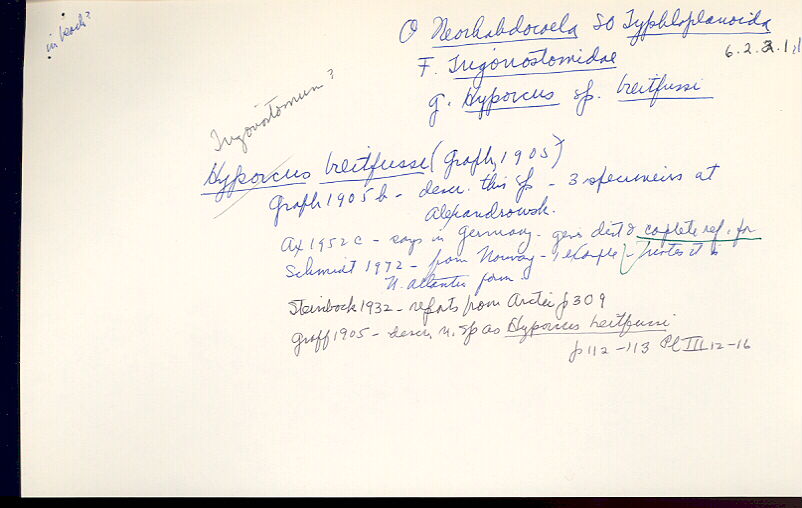 in book?
O Neorhabdocoela SO Typhloplanoida
6.2.2.1.1
F. Trigonostomidae
g. Hyporcus sp. breitfussi
Trigonostomum?
Hyporcus breitfussi (Graff, 1905)
Graff 1905 b - descr. this sp - 3 specimens at
Alexandrowsk.
Ax 1952 c - says in Germany - gives dist & coplete ref. for
Schmidt 1972 - from Norway - 1 example - notes it is
N. atlantic form
Steinbock 1932 - refots from Arctic p 309
Graff 1905 - descr. n. sp as Hyporcus breitfussi
p 112 - 113 Pl III 12-16